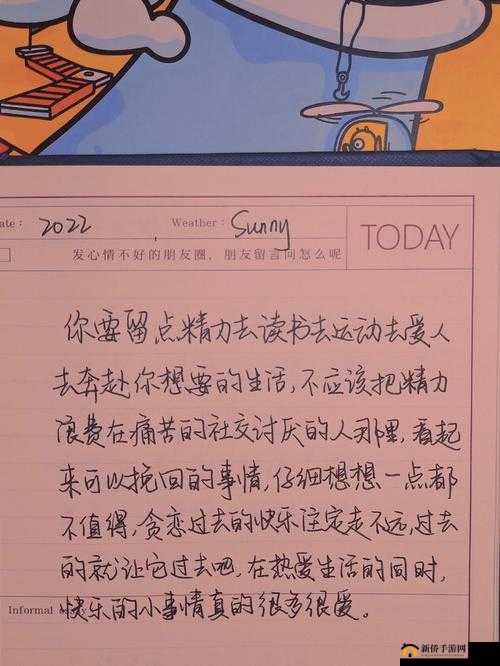 Date: 2022 Weather: Sunny
TODAY
发心情不好的朋友圈，朋友留言问怎么呢
你要留点精力去读书去运动去爱人
去奔赴你想要的生活,不应该把精力
浪费在痛苦的社交讨厌的人那里,看起
来可以挽回的事情,仔细想想一点都
不值得,贪恋过去的快乐注定走不远,过去
的就让它过去吧,在热爱生活的同时,
Informal
快乐的小事情真的很多很爱。
新侨手游网